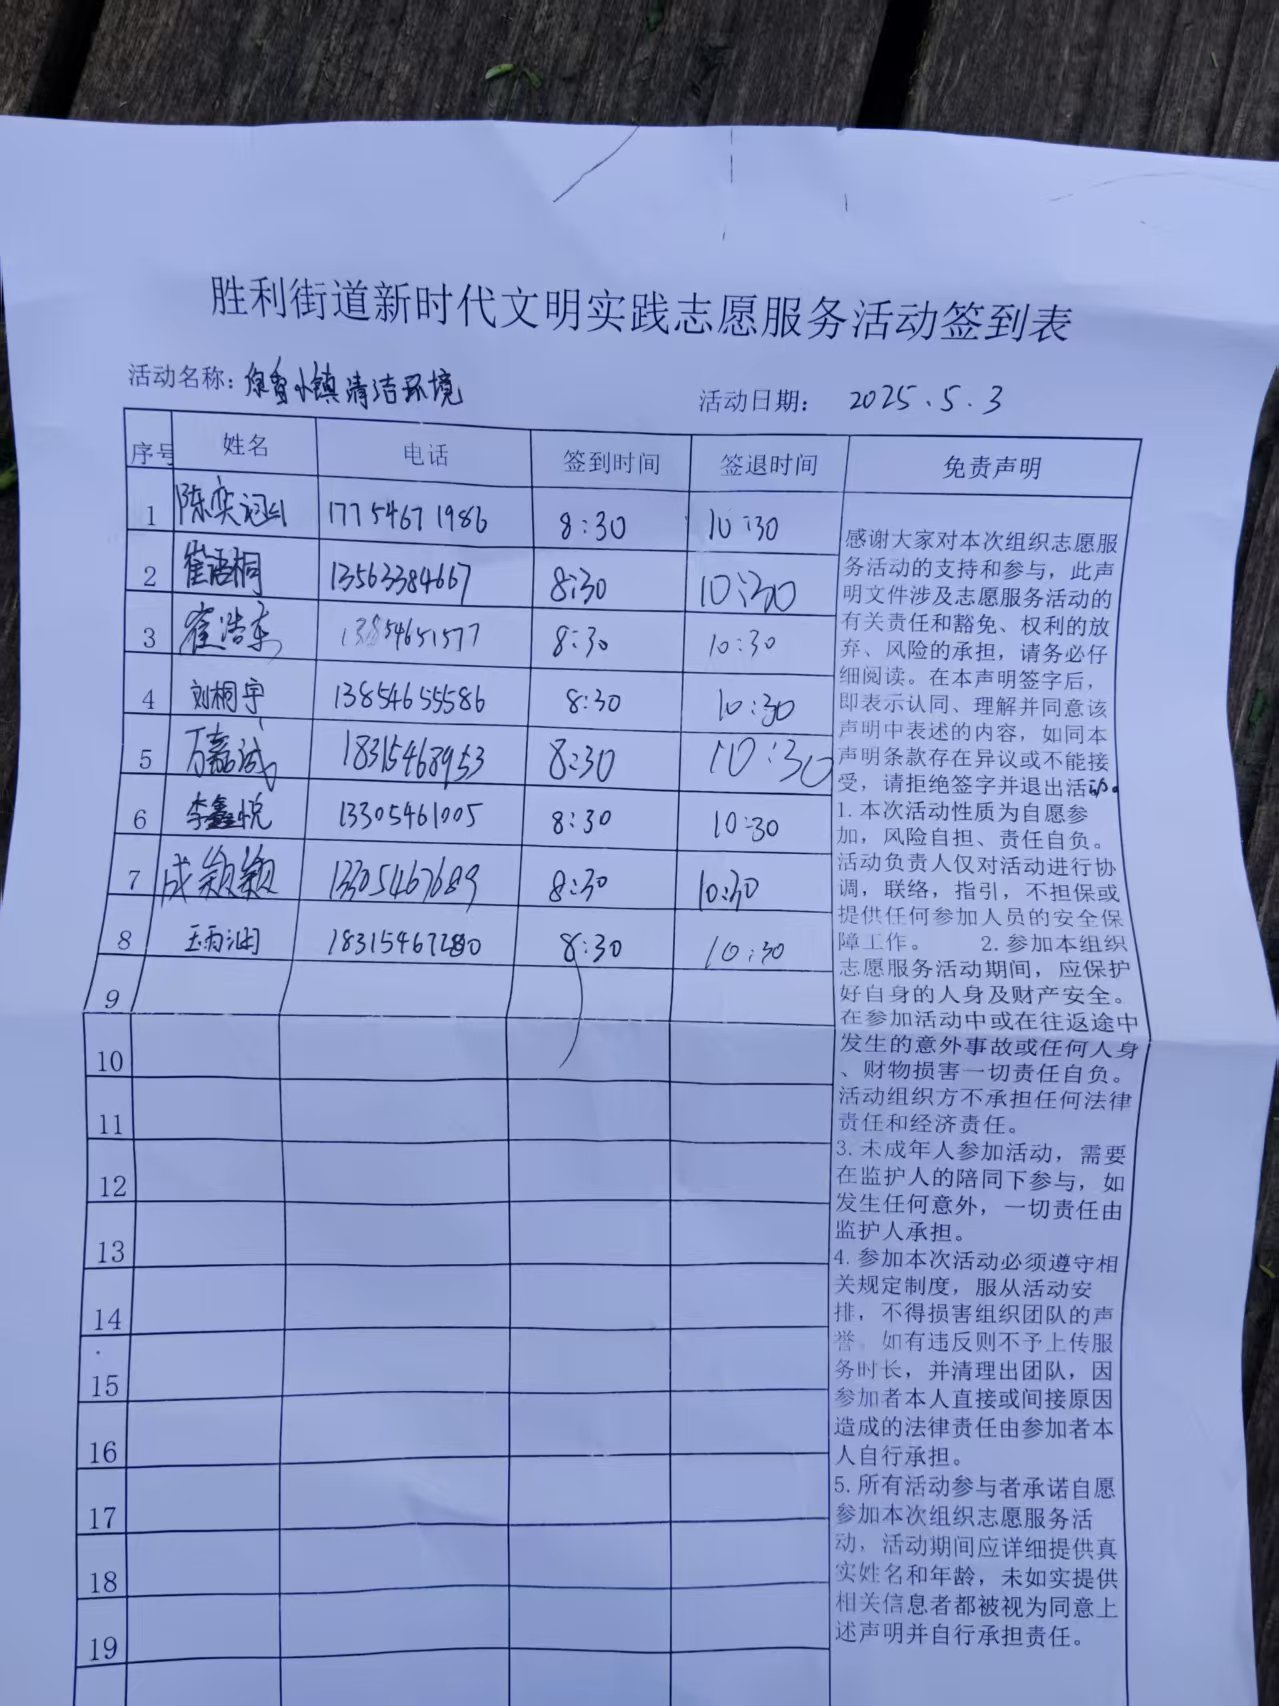 胜利街道新时代文明实践志愿服务活动签到表
活动名称：小镇清洁环境 活动日期： 2025.5.3
序号 姓名 电话 签到时间 签退时间 免责声明
1 陈奕 17754671986 8:30 10:30
2 崔语桐 13563384667 8:30 10:30
3 崔浩东 13854651577 8:30 10:30
4 刘桐宇 13854655586 8:30 10:30
5 万嘉诚 18315468953 8:30 10:30
6 李鑫悦 13305461005 8:30 10:30
7 成颖颖 13305467689 8:30 10:30
8 王雨涵 8:30 10:30
9
10
11
12
13
14
15
16
17
18
19
感谢大家对本次组织志愿服
务活动的支持和参与，此声
明文件涉及志愿服务活动的
有关责任和豁免、权利的放
弃、风险的承担，请务必仔
细阅读。在本声明签字后，
即表示认同、理解并同意该
声明中表述的内容，如同本
声明条款存在异议或不能接
受，请拒绝签字并退出活动。
1. 本次活动性质为自愿参
加，风险自担、责任自负。
活动负责人仅对活动进行协
调，联络，指引，不担保或
提供任何参加人员的安全保
障工作。 2. 参加本组织
志愿服务活动期间，应保护
好自身的人身及财产安全。
在参加活动中或在往返途中
发生的意外事故或任何人身
、财物损害一切责任自负。
活动组织方不承担任何法律
责任和经济责任。
3. 未成年人参加活动，需要
在监护人的陪同下参与，如
发生任何意外，一切责任由
监护人承担。
4. 参加本次活动必须遵守相
关规定制度，服从活动安
排，不得损害组织团队的声
誉。如有违反则不予上传服
务时长，并清理出团队，因
参加者本人直接或间接原因
造成的法律责任由参加者本
人自行承担。
5. 所有活动参与者承诺自愿
参加本次组织志愿服务活
动，活动期间应详细提供真
实姓名和年龄，未如实提供
相关信息者都被视为同意上
述声明并自行承担责任。